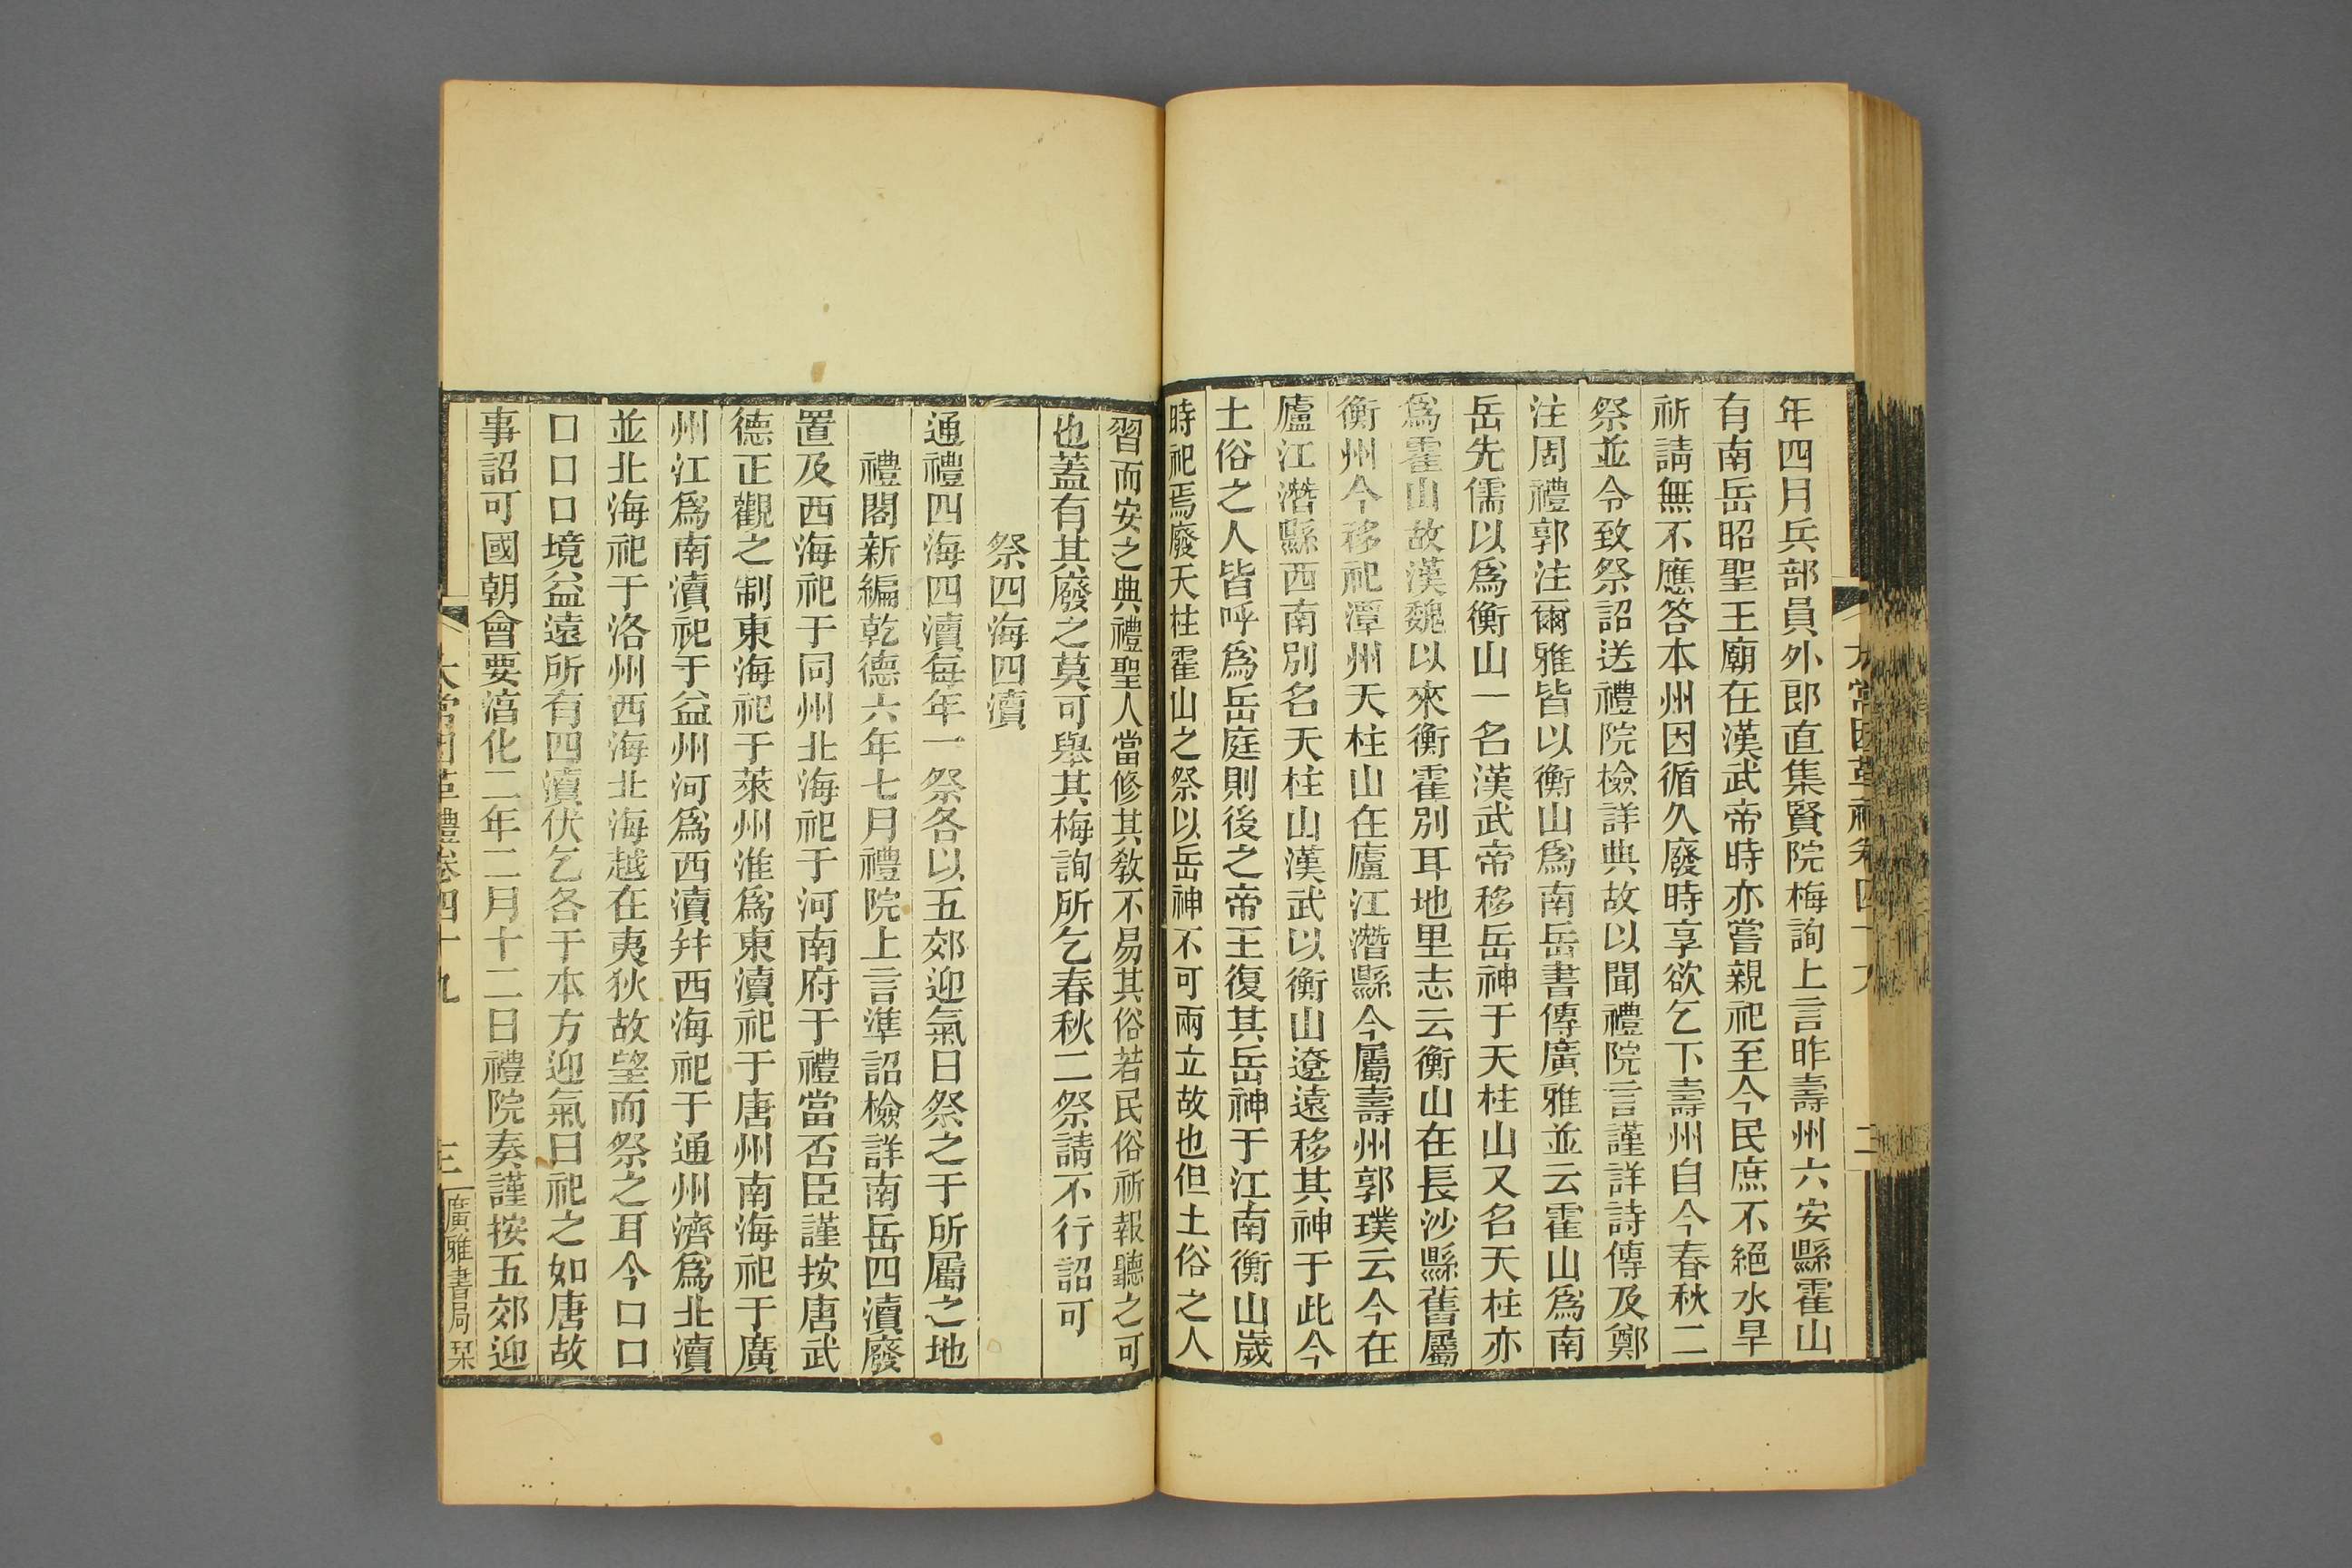 年四月兵部員外郎直集賢院梅詢上言昨壽州六安縣霍山
有南岳昭聖王廟在漢武帝時亦嘗親祀至今民庶不絕水旱
祈請無不應答本州因循久廢時享欲乞下壽州自今春秋二
祭並令致祭詔送禮院檢詳典故以聞禮院言謹詳詩傳及鄭
注周禮郭注爾雅皆以衡山爲南岳書傳廣雅並云霍山爲南
岳先儒以爲衡山一名漢武帝移岳神于天柱山又名天柱亦
爲霍山故漢魏以來衡霍別耳地里志云衡山在長沙縣舊屬
衡州今移祀潭州天柱山在廬江潛縣今屬壽州郭璞云今在
廬江潛縣西南別名天柱山漢武以衡山遼遠移其神于此今
土俗之人皆呼爲岳庭則後之帝王復其岳神于江南衡山歲
時祀焉廢天柱霍山之祭以岳神不可兩立故也但土俗之人
習而安之典禮聖人當修其敎不易其俗若民俗祈報聽之可
也蓋有其廢之莫可舉其梅詢所乞春秋二祭請不行詔可
祭四海四瀆
通禮四海四瀆每年一祭各以五郊迎氣日祭之于所屬之地
禮閣新編乾德六年七月禮院上言準詔檢詳南岳四瀆廢
置及西海祀于同州北海祀于河南府于禮當否臣謹按唐武
德正觀之制東海祀于萊州淮爲東瀆祀于唐州南海祀于廣
州江爲南瀆祀于益州河爲西瀆幷西海祀于通州濟爲北瀆
並北海祀于洛州西海北海越在夷狄故望而祭之耳今口口
口口口境益遠所有四瀆伏乞各于本方迎氣日祀之如唐故
事詔可國朝會要淳化二年二月十二日禮院奏謹按五郊迎
太常因革禮卷四十九
三
廣雅書局栞